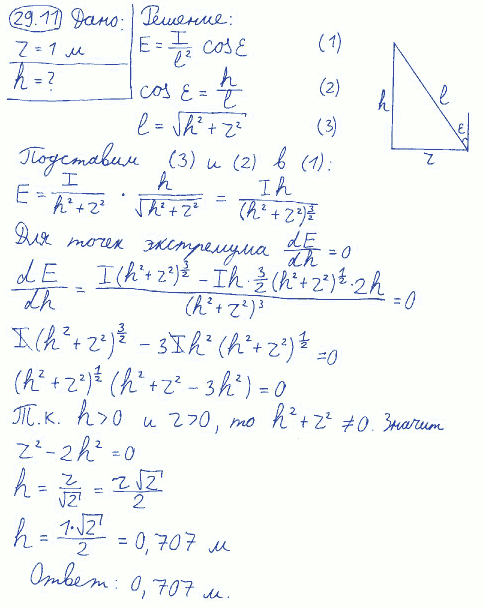 29.11 Дано: Решение:
r = 1 м
h = ?
E = I/l² cos ε (1)
cos ε = h/l (2)
l = √(h² + r²) (3)
h l ε r
Подставим (3) и (2) в (1):
E = I/(h² + r²) · h/√(h² + r²) = Ih/(h² + r²)^(3/2)
Для точек экстремума dE/dh = 0
dE/dh = (I(h² + r²)^(3/2) − Ih · 3/2 (h² + r²)^(1/2) · 2h)/(h² + r²)³ = 0
I(h² + r²)^(3/2) − 3Ih² (h² + r²)^(1/2) = 0
(h² + r²)^(1/2) (h² + r² − 3h²) = 0
Т.к. h > 0 и r > 0, то h² + r² ≠ 0. Значит
r² − 2h² = 0
h = r/√2 = r√2/2
h = 1·√2/2 = 0,707 м
Ответ: 0,707 м.